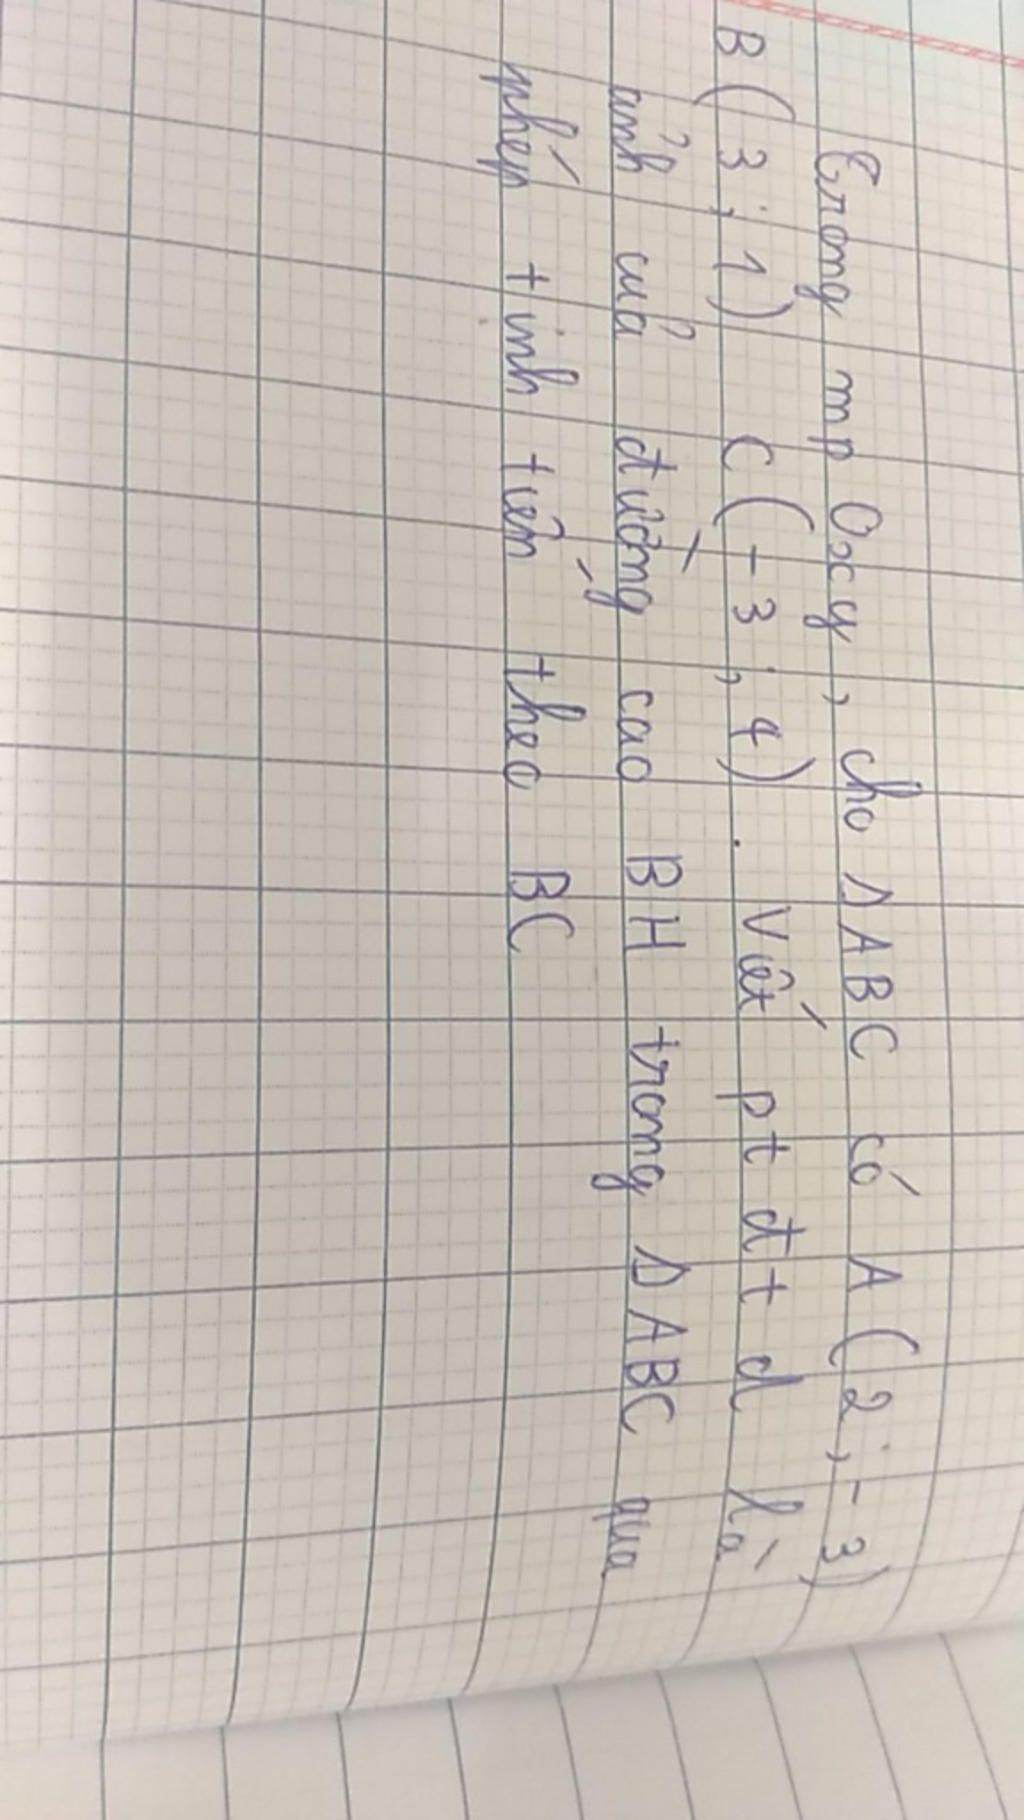 Trong mp Oxy, cho ΔABC có A(2;-3)
B(3;1) C(-3;4). Viết pt đt d là
ảnh của đường cao BH trong ΔABC qua
phép tịnh tiến theo BC